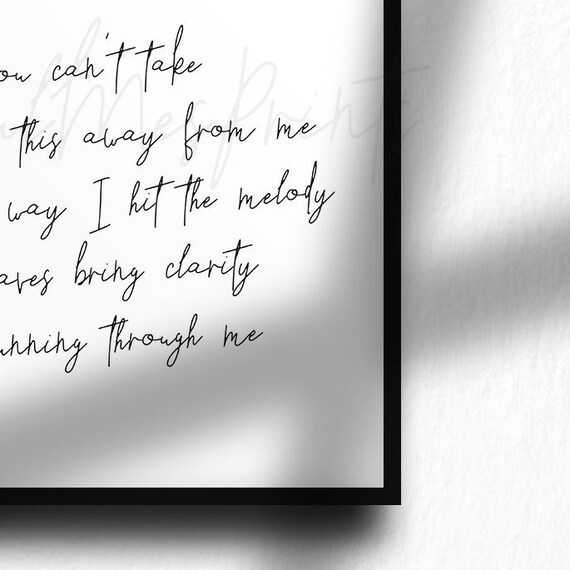 ou can't take
this away from me
way I hit the melody
aves bring clarity
unning through me